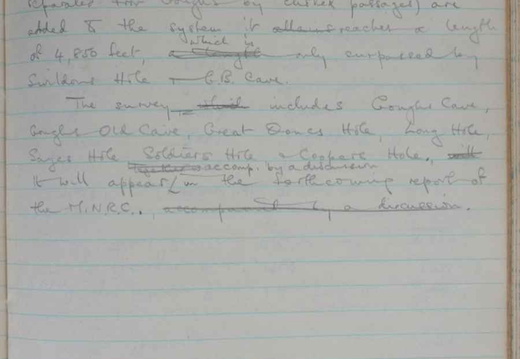 separated from Goughs by choked passages) are
added to the system it attains reaches a length
of 4,850 feet, which is only surpassed by
Swildons Hole & G.B. Cave.
The survey, includes Goughs Cave,
Goughs Old Cave, Great Oones Hole, Long Hole,
Sayes Hole Soldiers Hole & Coopers Hole.
accomp. by a discussion
It will appear in the forthcoming report of
the M.N.R.C., accompanied by a discussion.